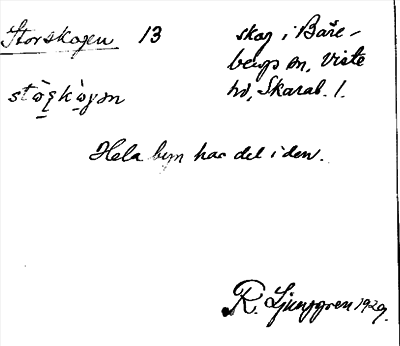 Storskogen 13 skog i Båre-
bergs sn, Viste
hd, Skarab. l.
Hela byn har del i den.
R. Ljunggren 1929.